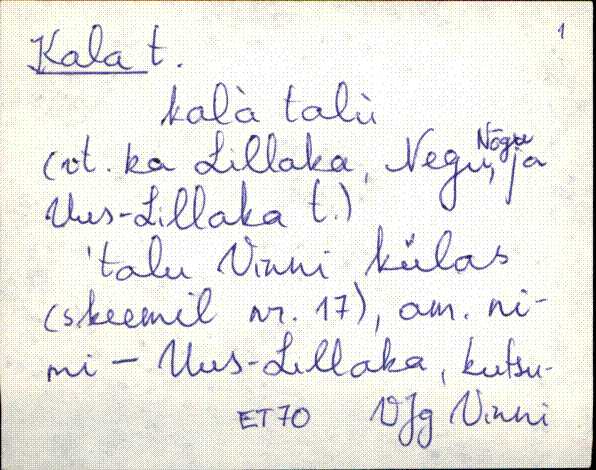 1
Kala t.
kalà talù
(vt. ka Lillaka, Negu, Nõgu ja
Uus-Lillaka t.)
'talu Vinni külas
(skeemil nr. 17), am. ni-
mi - Uus-Lillaka, kutsu-
ET70 VJg Vinni